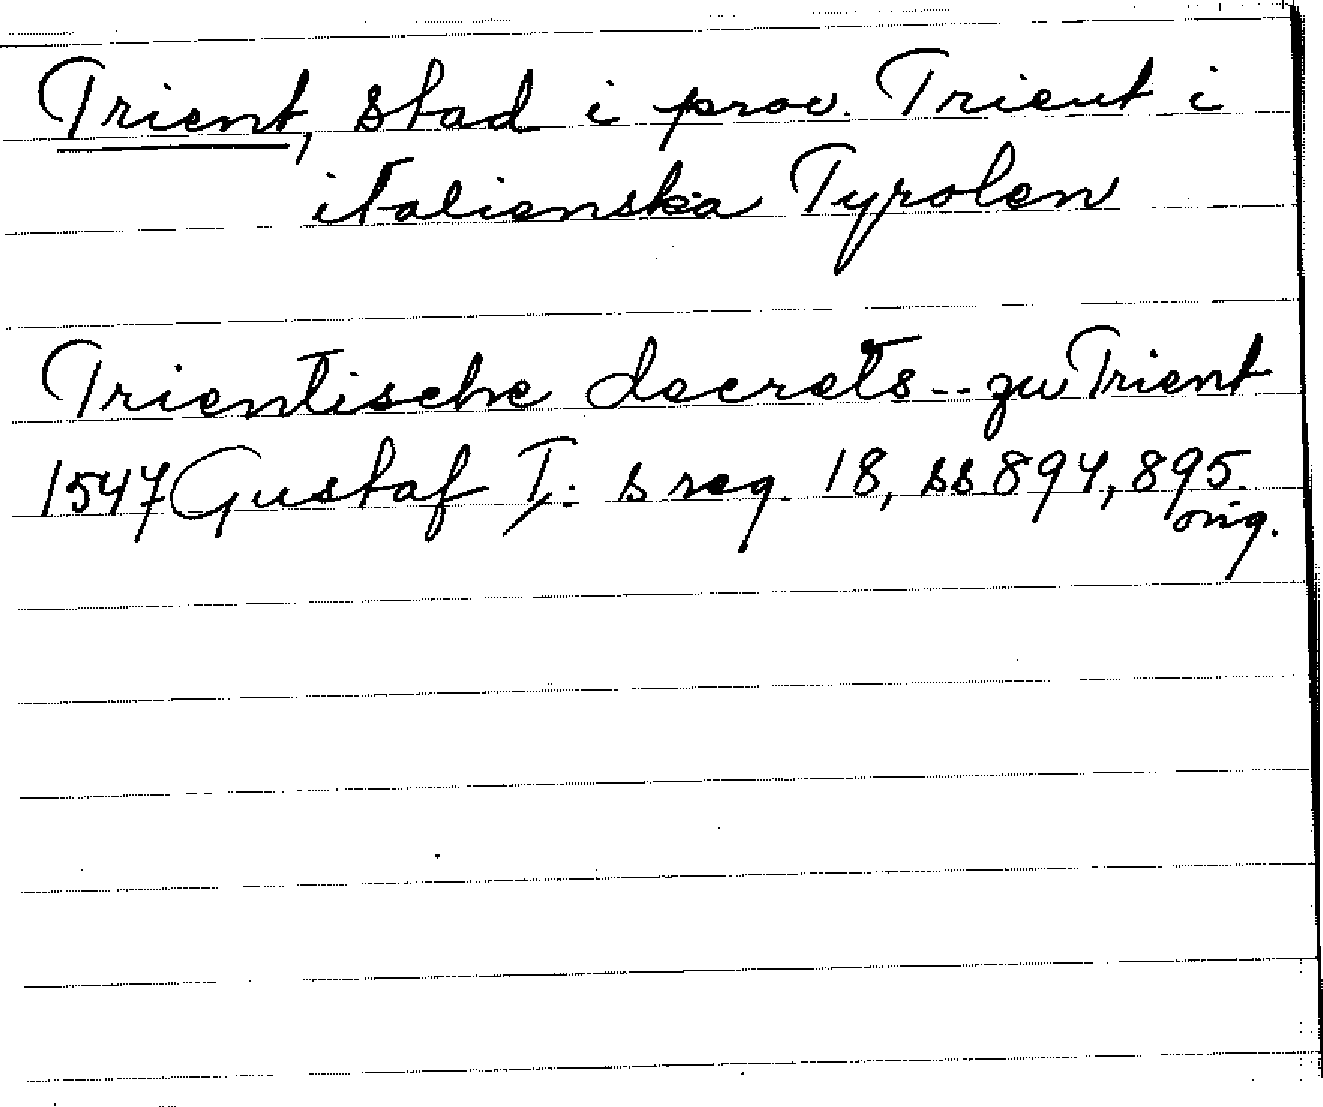 Trient, stad i prov. Trient i
italienska Tyrolen
Trientische decrets -- zu Trient
1547 Gustaf I: s reg. 18, ss 894, 895.
orig.